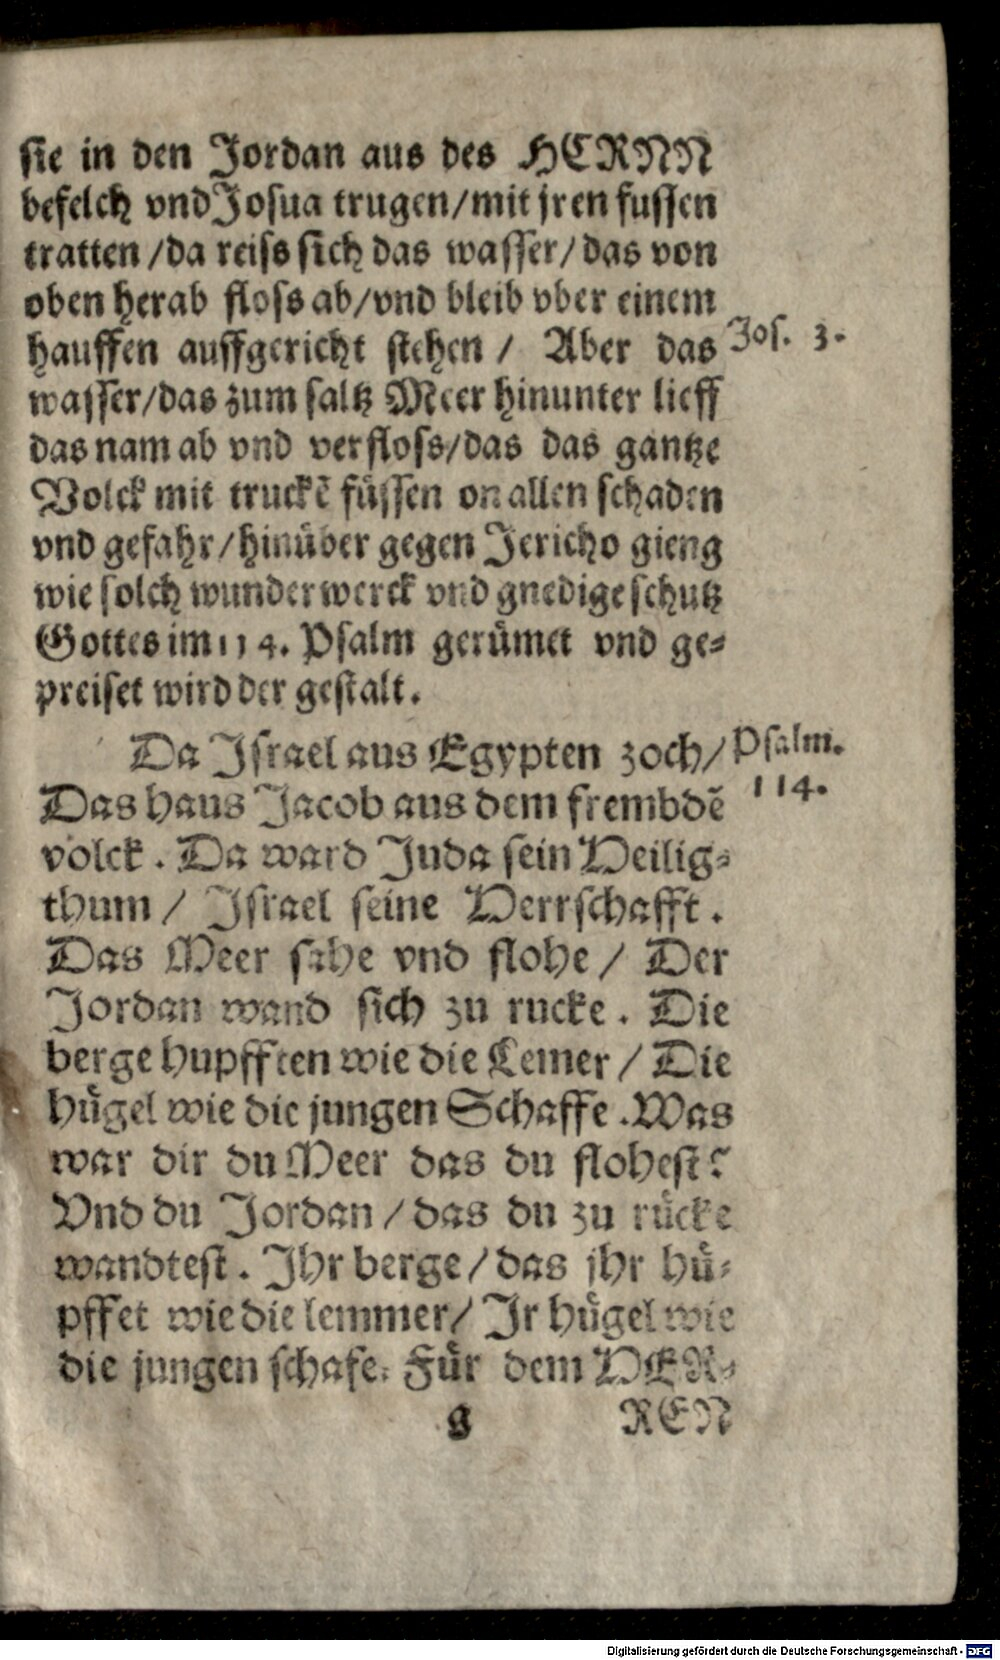 sie in den Jordan aus des HERNN
befelch vnd Josua trugen/mit jren fussen
tratten/da reiss sich das wasser/das von
oben herab floss ab/vnd bleib vber einem
hauffen auffgericht stehen / Aber das
Jos. 3.
wasser/das zum saltz Meer hinunter lieff
das nam ab vnd verfloss/das das gantze
Volck mit truckē füssen on allen schaden
vnd gefahr/hinüber gegen Jericho gieng
wie solch wunderwerck vnd gnedige schutz
Gottes im 114. Psalm gerümet vnd ge-
preiset wird der gestalt.
Da Israel aus Egypten zoch/
Psalm.
114.
Das haus Jacob aus dem frembdē
volck. Da ward Juda sein Heilig-
thum / Israel seine Herrschafft.
Das Meer sahe vnd flohe / Der
Jordan wand sich zu rucke. Die
berge hupfften wie die Lemer / Die
hügel wie die jungen Schaffe. Was
war dir du Meer das du flohest?
Vnd du Jordan/das du zu rücke
wandtest. Ihr berge/das jhr hü-
pffet wie die lemmer/ Ir hügel wie
die jungen schafe. Für dem HER-
g REN
Digitalisierung gefördert durch die Deutsche Forschungsgemeinschaft - DFG